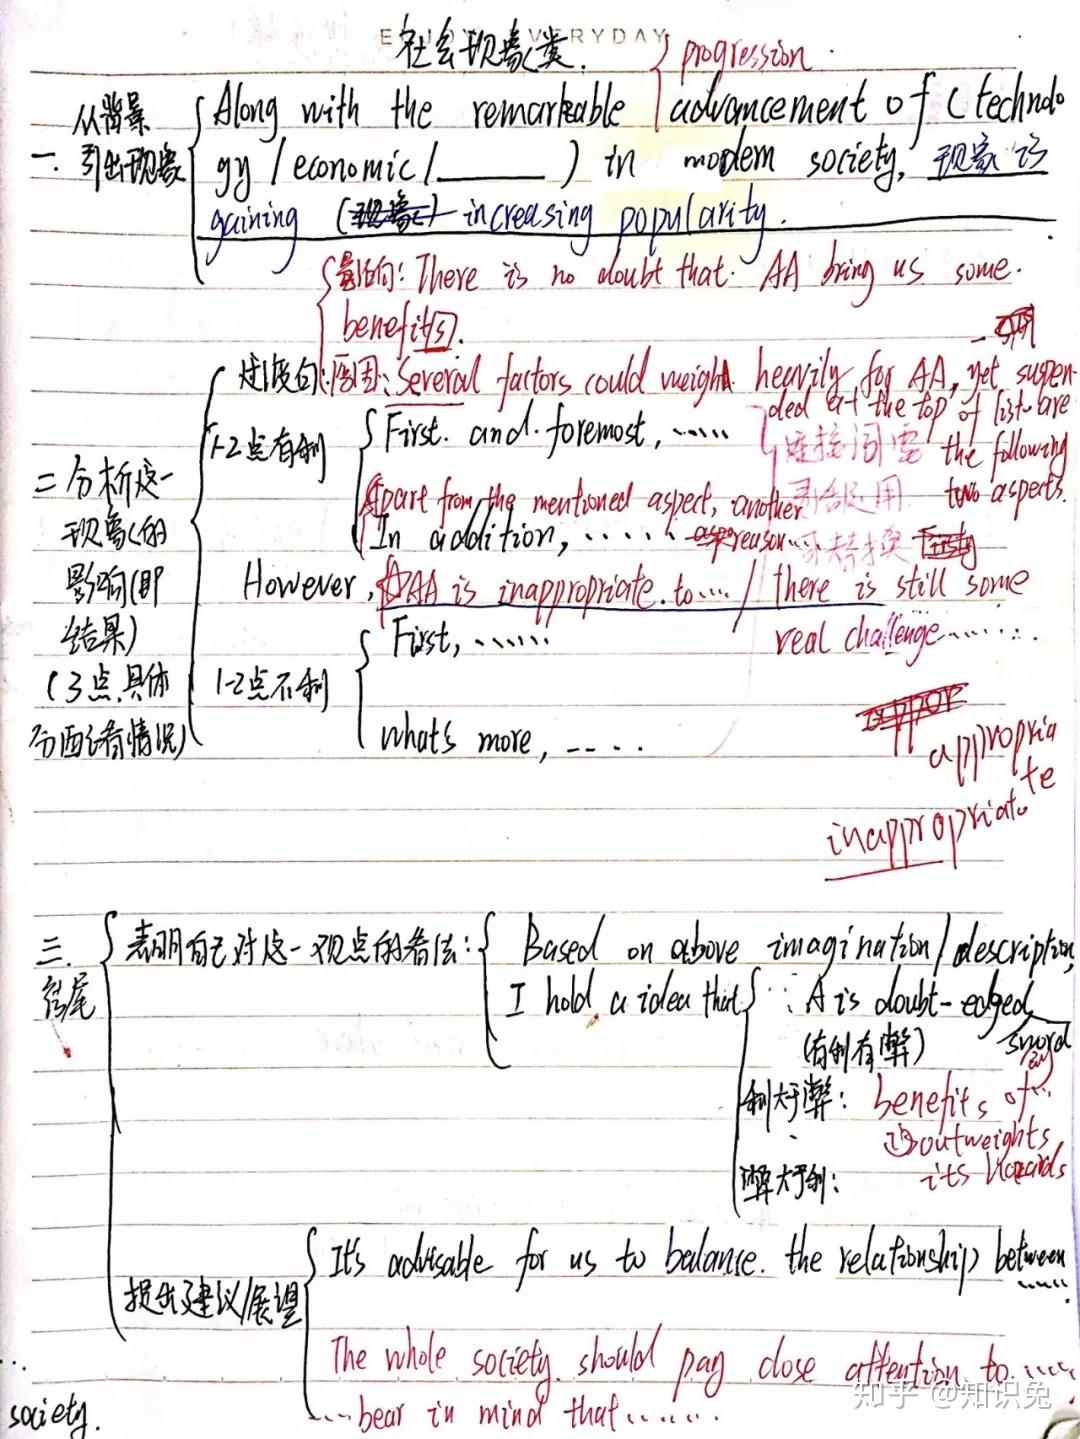 ENJOY EVERYDAY
社会现象类.
progression
从背景
一. 引出现象
Along with the remarkable advancement of (technolo
gy / economic / ______ ) in modern society, 现象 is
gaining (现象) increasing popularity.
影响句: There is no doubt that AA bring us some
benefit(s).
过渡句: 原因: Several factors could weight heavily for AA, yet suspen-
ded at the top of list are
the following
two aspects.
1-2点有利
First and foremost, ......
连接词需
灵活运用
可替换
Firstly
Apart from the mentioned aspect, another
In addition, ...... reason...
二 分析这一
现象的
影响(即
结果)
(3点,具体
分面看情况)
However, AA is inappropriate to.... / there is still some
real challenge.......
1-2点不利
First, .......
what's more, .....
appropria
te
inappropriate
三.
结尾
表明自己对这一观点的看法:
Based on above imagination / description,
I hold a idea that
A is doubt-edged
sword
(有利有弊)
利大于弊: benefits of...
outweights
its hazards
弊大于利:
提出建议/展望
It's advisable for us to balance the relationship between
......
The whole society should pay close attention to .....
...
society.
.... bear in mind that .......
知乎 @知识兔